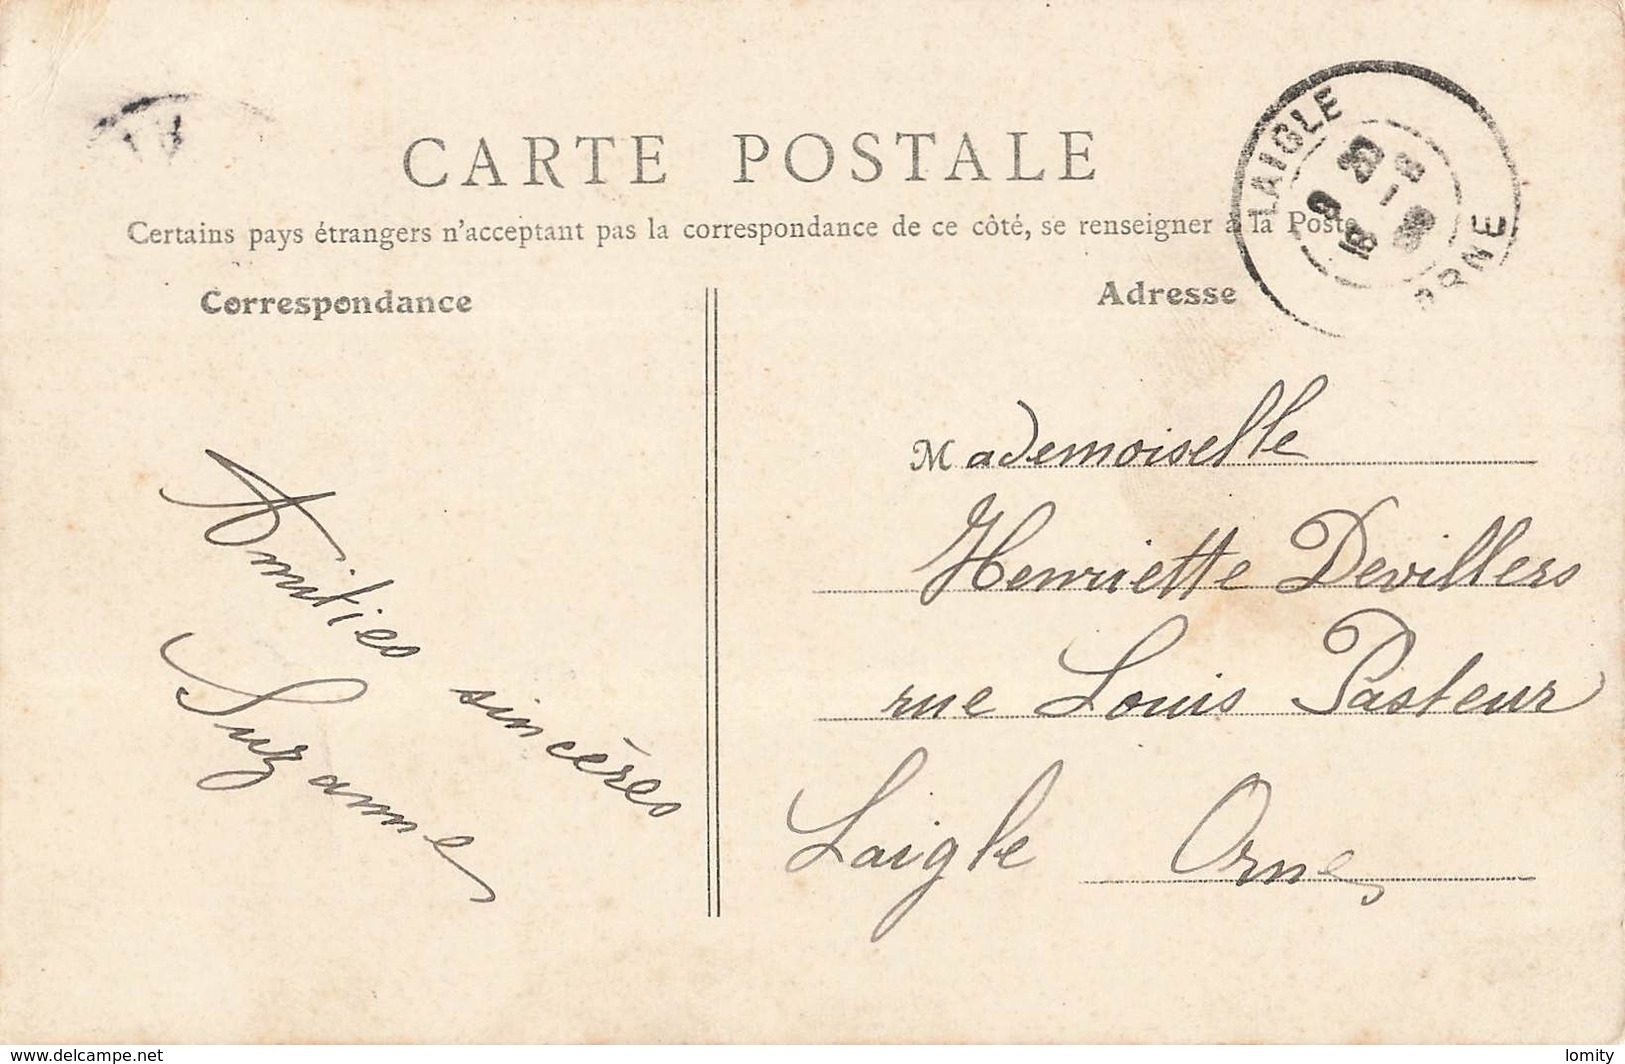 CARTE POSTALE
Certains pays étrangers n'acceptant pas la correspondance de ce côté, se renseigner à la Poste
Correspondance
Adresse
LAIGLE
ORNE
Amitiés sincères
Suzanne
Mademoiselle
Henriette Devillers
rue Louis Pasteur
Laigle Orne
www.delcampe.net
lomity